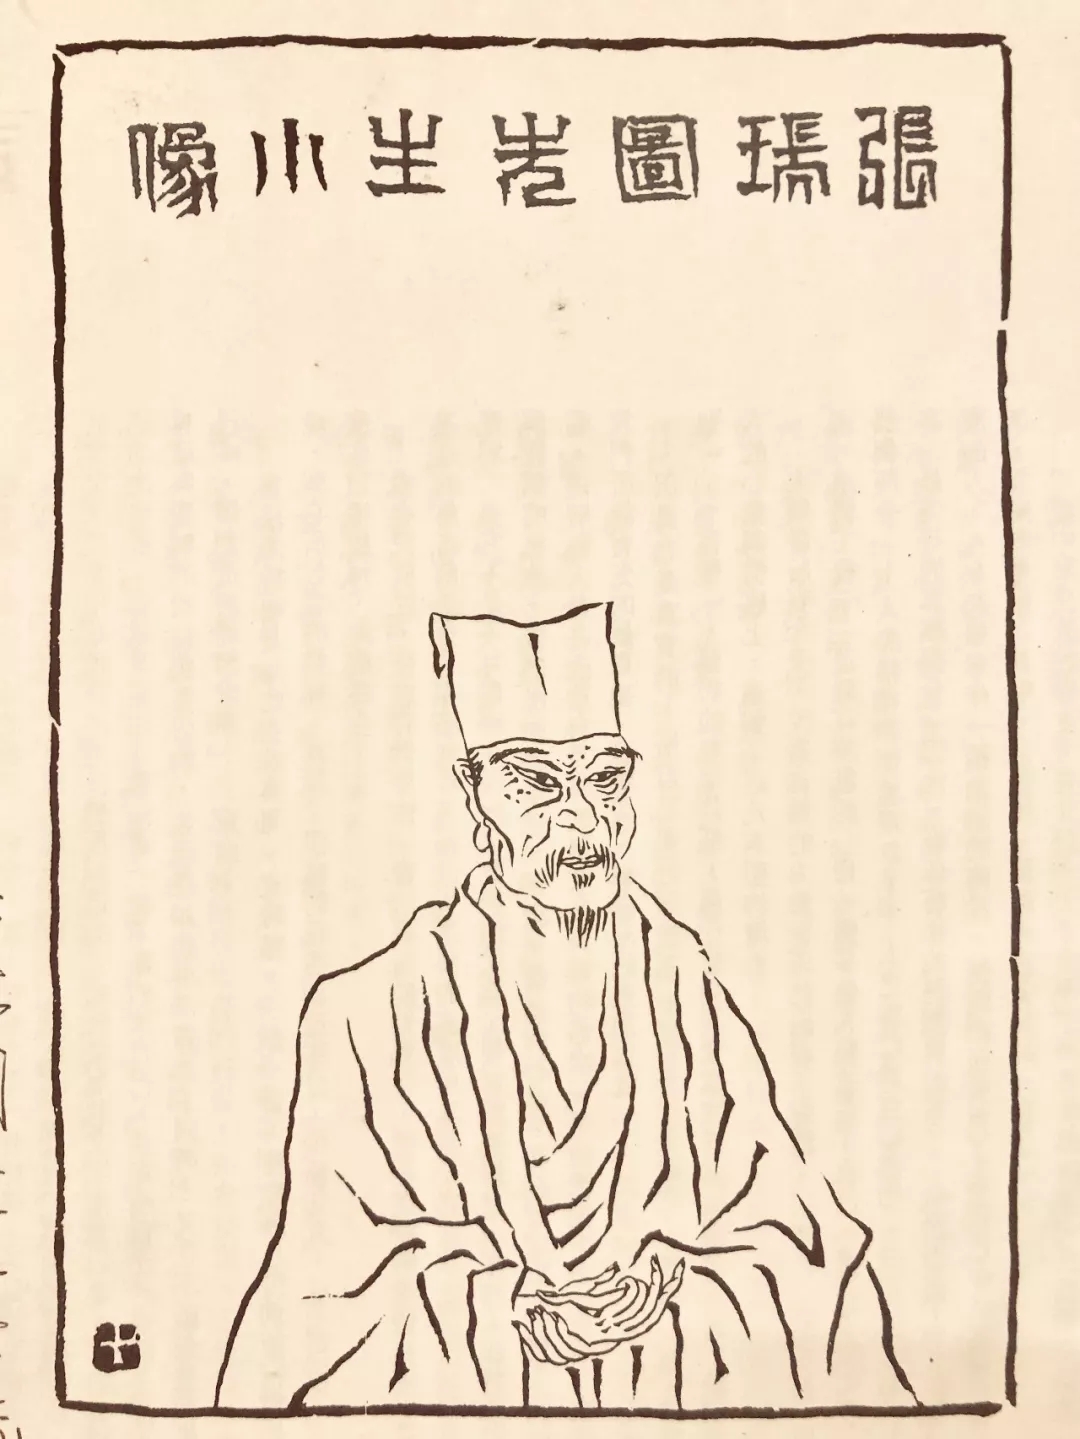 張瑞圖先生小像